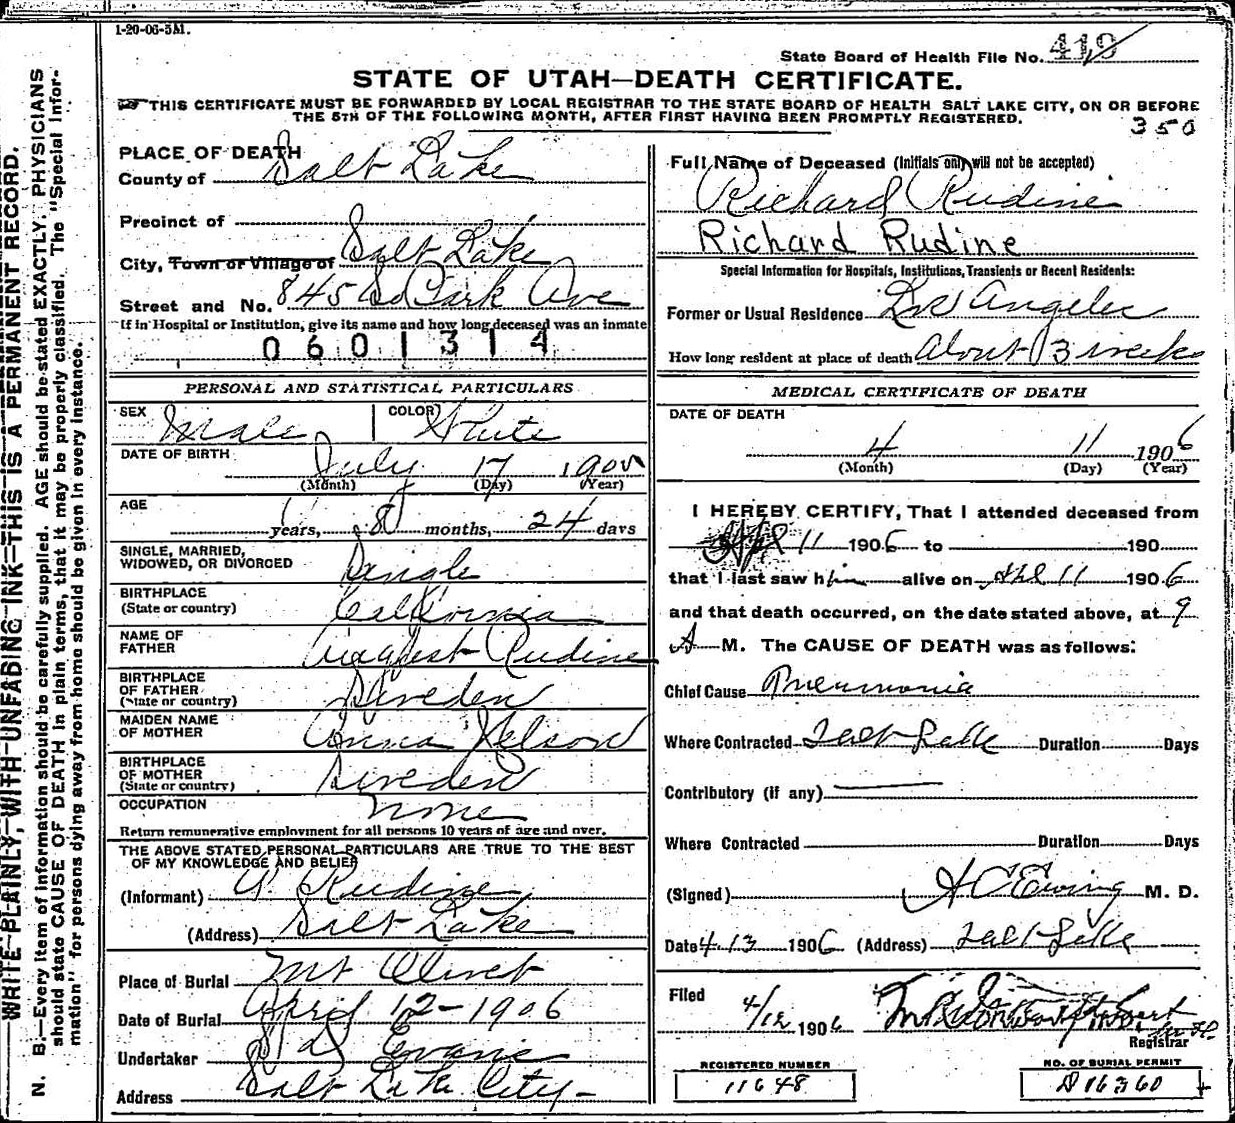 1-20-06-5M.
State Board of Health File No. 419
STATE OF UTAH—DEATH CERTIFICATE.
THIS CERTIFICATE MUST BE FORWARDED BY LOCAL REGISTRAR TO THE STATE BOARD OF HEALTH SALT LAKE CITY, ON OR BEFORE
THE 5TH OF THE FOLLOWING MONTH, AFTER FIRST HAVING BEEN PROMPTLY REGISTERED.
350
WRITE PLAINLY, WITH UNFADING INK—THIS IS A PERMANENT RECORD.
N. B.—Every item of information should be carefully supplied. AGE should be stated EXACTLY. PHYSICIANS
should state CAUSE OF DEATH in plain terms, that it may be properly classified. The "Special Infor-
mation" for persons dying away from home should be given in every instance.
PLACE OF DEATH
County of Salt Lake
Precinct of
City, Town or Village of Salt Lake
Street and No. 845 So Park Ave
If in Hospital or Institution, give its name and how long deceased was an inmate
0601314
PERSONAL AND STATISTICAL PARTICULARS
SEX Male COLOR White
DATE OF BIRTH July 17
(Month) (Day) (Year)
AGE
years, 8 months, 24 days
SINGLE, MARRIED,
WIDOWED, OR DIVORCED Single
BIRTHPLACE
(State or country) California
NAME OF
FATHER August Rudine
BIRTHPLACE
OF FATHER
(State or country) Sweden
MAIDEN NAME
OF MOTHER Anna Nelson
BIRTHPLACE
OF MOTHER
(State or country) Sweden
OCCUPATION none
Return remunerative employment for all persons 10 years of age and over.
THE ABOVE STATED PERSONAL PARTICULARS ARE TRUE TO THE BEST
OF MY KNOWLEDGE AND BELIEF
(Informant) A. Rudine
(Address) Salt Lake
Place of Burial Mt Olivet
Date of Burial April 12-1906
Undertaker Evans
Address Salt Lake City-
Full Name of Deceased (Initials only will not be accepted)
Richard Rudine
Richard Rudine
Special Information for Hospitals, Institutions, Transients or Recent Residents:
Former or Usual Residence Los Angeles
How long resident at place of death About 3 weeks
MEDICAL CERTIFICATE OF DEATH
DATE OF DEATH
4 11 1906
(Month) (Day) (Year)
I HEREBY CERTIFY, That I attended deceased from
Apl 11 1906 to 190
that I last saw him alive on Apl 11 1906
and that death occurred, on the date stated above, at 9
A M. The CAUSE OF DEATH was as follows:
Chief Cause Pneumonia
Where Contracted Salt Lake Duration Days
Contributory (if any)
Where Contracted Duration Days
(Signed) A C Ewing M. D.
Date 4-13 1906 (Address) Salt Lake
Filed
4/12 1906
Registrar
REGISTERED NUMBER
11648
NO. OF BURIAL PERMIT
A16360